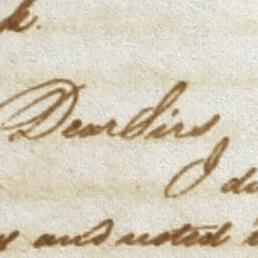 Dear Sirs
I
and noted